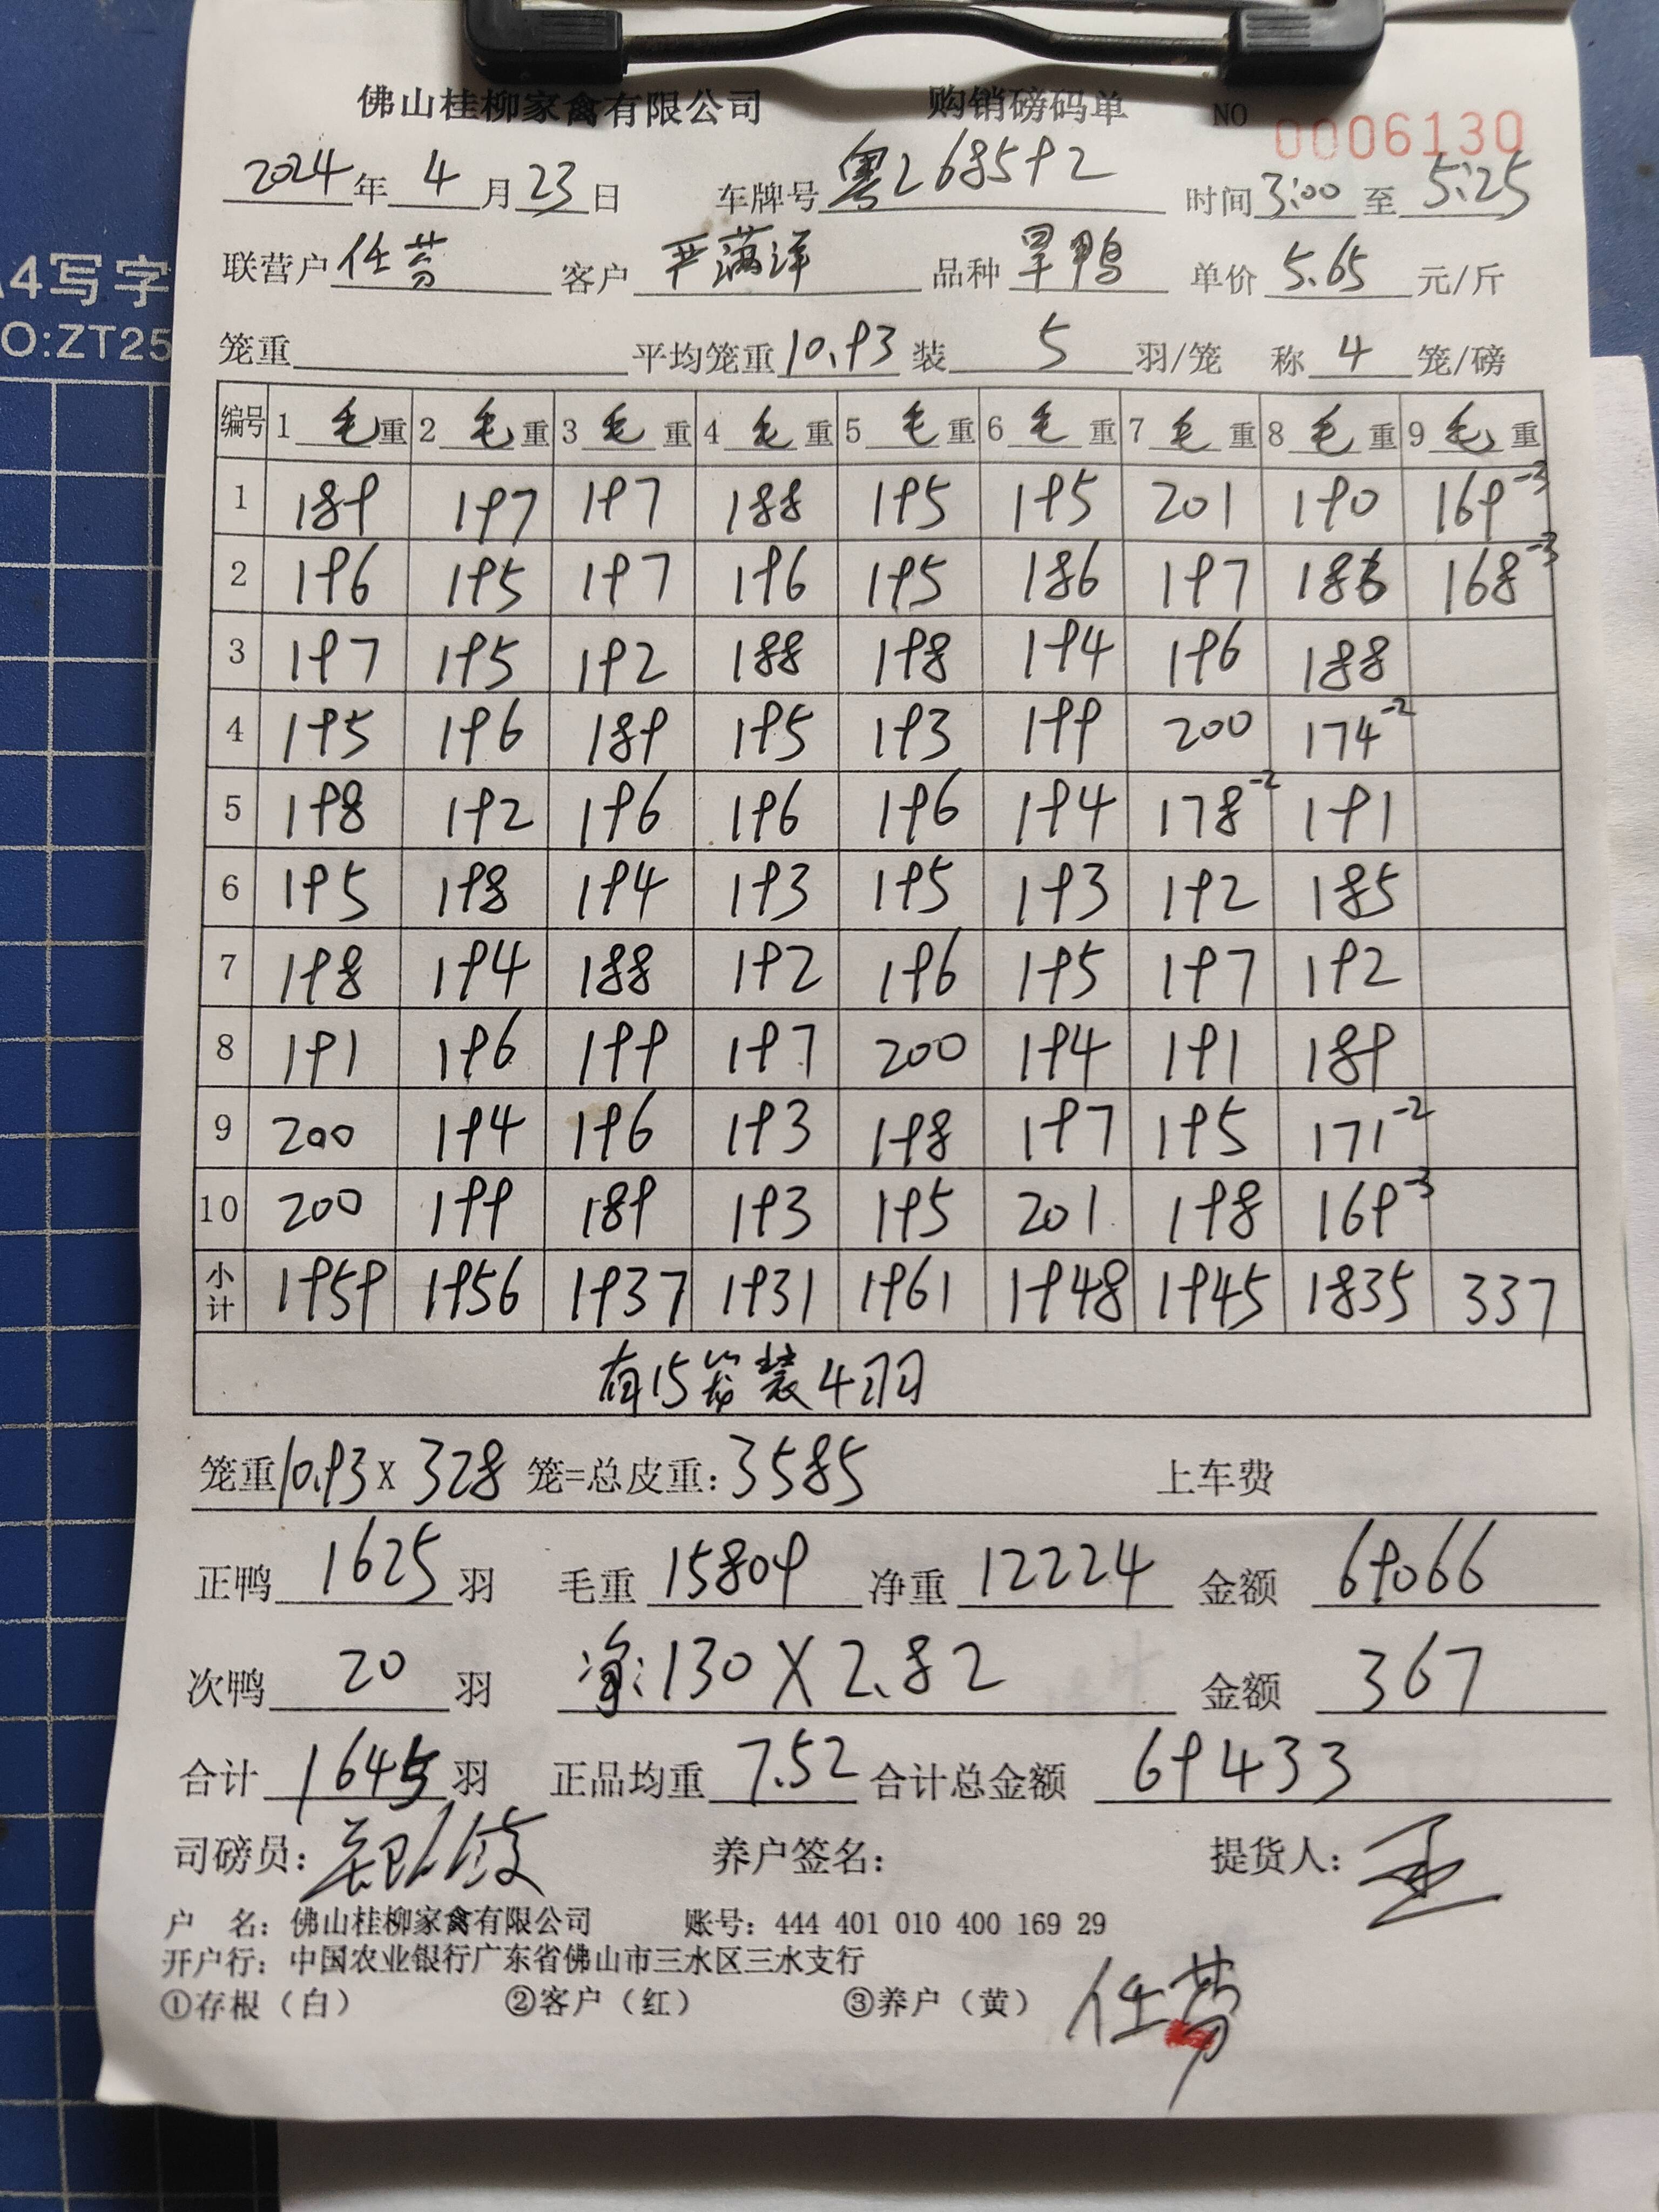 佛山桂柳家禽有限公司 购销磅码单 NO 0006130
2024年4月23日 车牌号粤L68592 时间3:00至5:25
联营户任芬 客户严满洋 品种旱鸭 单价5.65元/斤
笼重 平均笼重10.93装5羽/笼 称4笼/磅
编号 1毛重 2毛重 3毛重 4毛重 5毛重 6毛重 7毛重 8毛重 9毛重
1 189 197 197 188 195 195 201 190 169-3
2 196 195 197 196 195 186 197 186 168-3
3 197 195 192 188 198 194 196 188
4 195 196 189 195 193 199 200 174-2
5 198 192 196 196 196 194 178-2 191
6 195 198 194 193 195 193 192 185
7 198 194 188 192 196 195 197 192
8 191 196 199 197 200 194 191 189
9 200 194 196 193 198 197 195 171-2
10 200 199 189 193 195 201 198 169-3
小计 1959 1956 1937 1931 1961 1948 1945 1835 337
有15笼装4羽
笼重10.93x328笼=总皮重:3585 上车费
正鸭1625羽 毛重15809净重12224金额69066
次鸭20羽 净:130X2.82金额367
合计1645羽 正品均重7.52合计总金额69433
司磅员: 养户签名: 提货人:
户 名:佛山桂柳家禽有限公司 账号:444 401 010 400 169 29
开户行:中国农业银行广东省佛山市三水区三水支行
①存根(白) ②客户(红) ③养户(黄) 任芬
A4写字
NO:ZT25